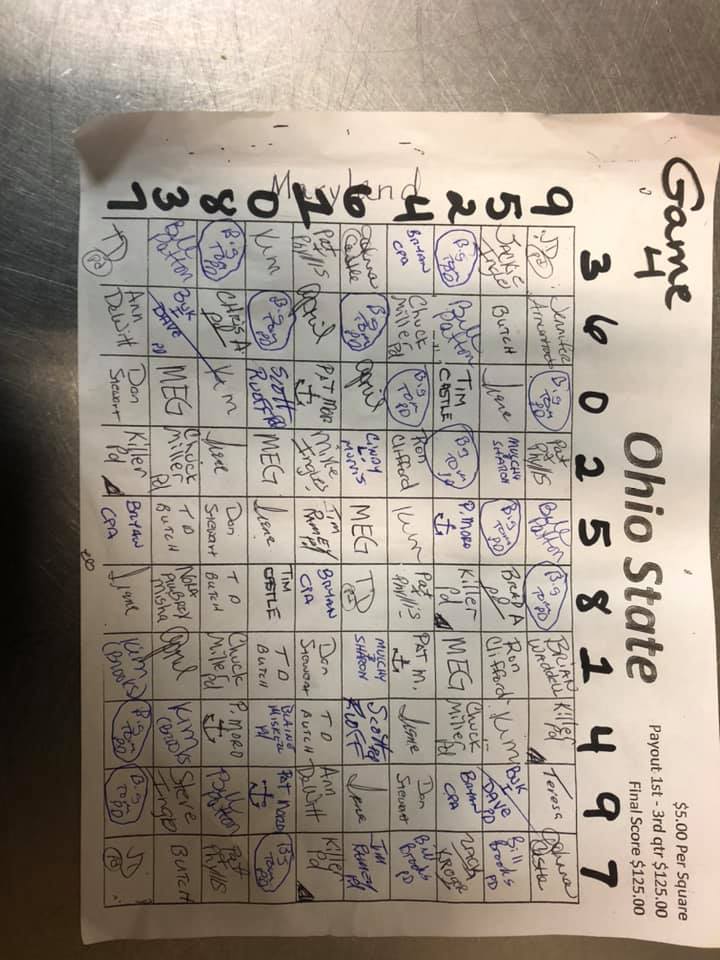 Game 4
Ohio State
$5.00 Per Square
Payout 1st - 3rd qtr $125.00
Final Score $125.00
Maryland
3 6 0 2 5 8 1 4 9 7
9 JD Pd Jennifer Big Tom PD Pat Phyllis Bill Patton Big Tom PD Brian Killer Pd Teresa Donna
5 Jackie Inge Butch Irene Mulchy & Sharon Big Tom PD Brad A pd Ron Clifford Kim Buk I Dave PD Bill Brooks PD
2 Big Tom PD Bill Patton Tim Castle Big Tom PD P. Moro Killer Pd MEG Chuck Miller Pd Bryan CPA Zach Kroger
4 Bryan CPA Chuck Miller Pd Big Tom PD Ron Clifford Kim Pat Phyllis Pat M. Irene Don Stewart Bill Brooks PD
6 Donna Castle Big Tom PD April Cindy Morris MEG TD Pd Mulchy & Sharon Scott Ruff Irene Tim Ramey Pd
1 Pat Phyllis April Pat Moro Mike Ingles Tim Ramey Pd Bryan CPA Don Stewart TD Butch Ann DeWitt Killer Pd
0 Kim Big Tom PD Scott Ruff MEG Irene Tim Castle TD Butch Blaine Pd Pat Moro Big Tom PD
8 Big Tom PD Chris A pd Kim Irene Don Stewart TD Butch Chuck Miller Pd P. Moro Bill Patton Pat Phyllis
3 Bill Patton Buk I Dave PD MEG Chuck Miller Pd TD Butch Misha April Kim (Brooks) Steve Inge Butch
7 TD Pd Ann DeWitt Don Stewart Killer Pd Bryan CPA Irene Kim (Brooks) Big Tom PD Big Tom PD JD Pd